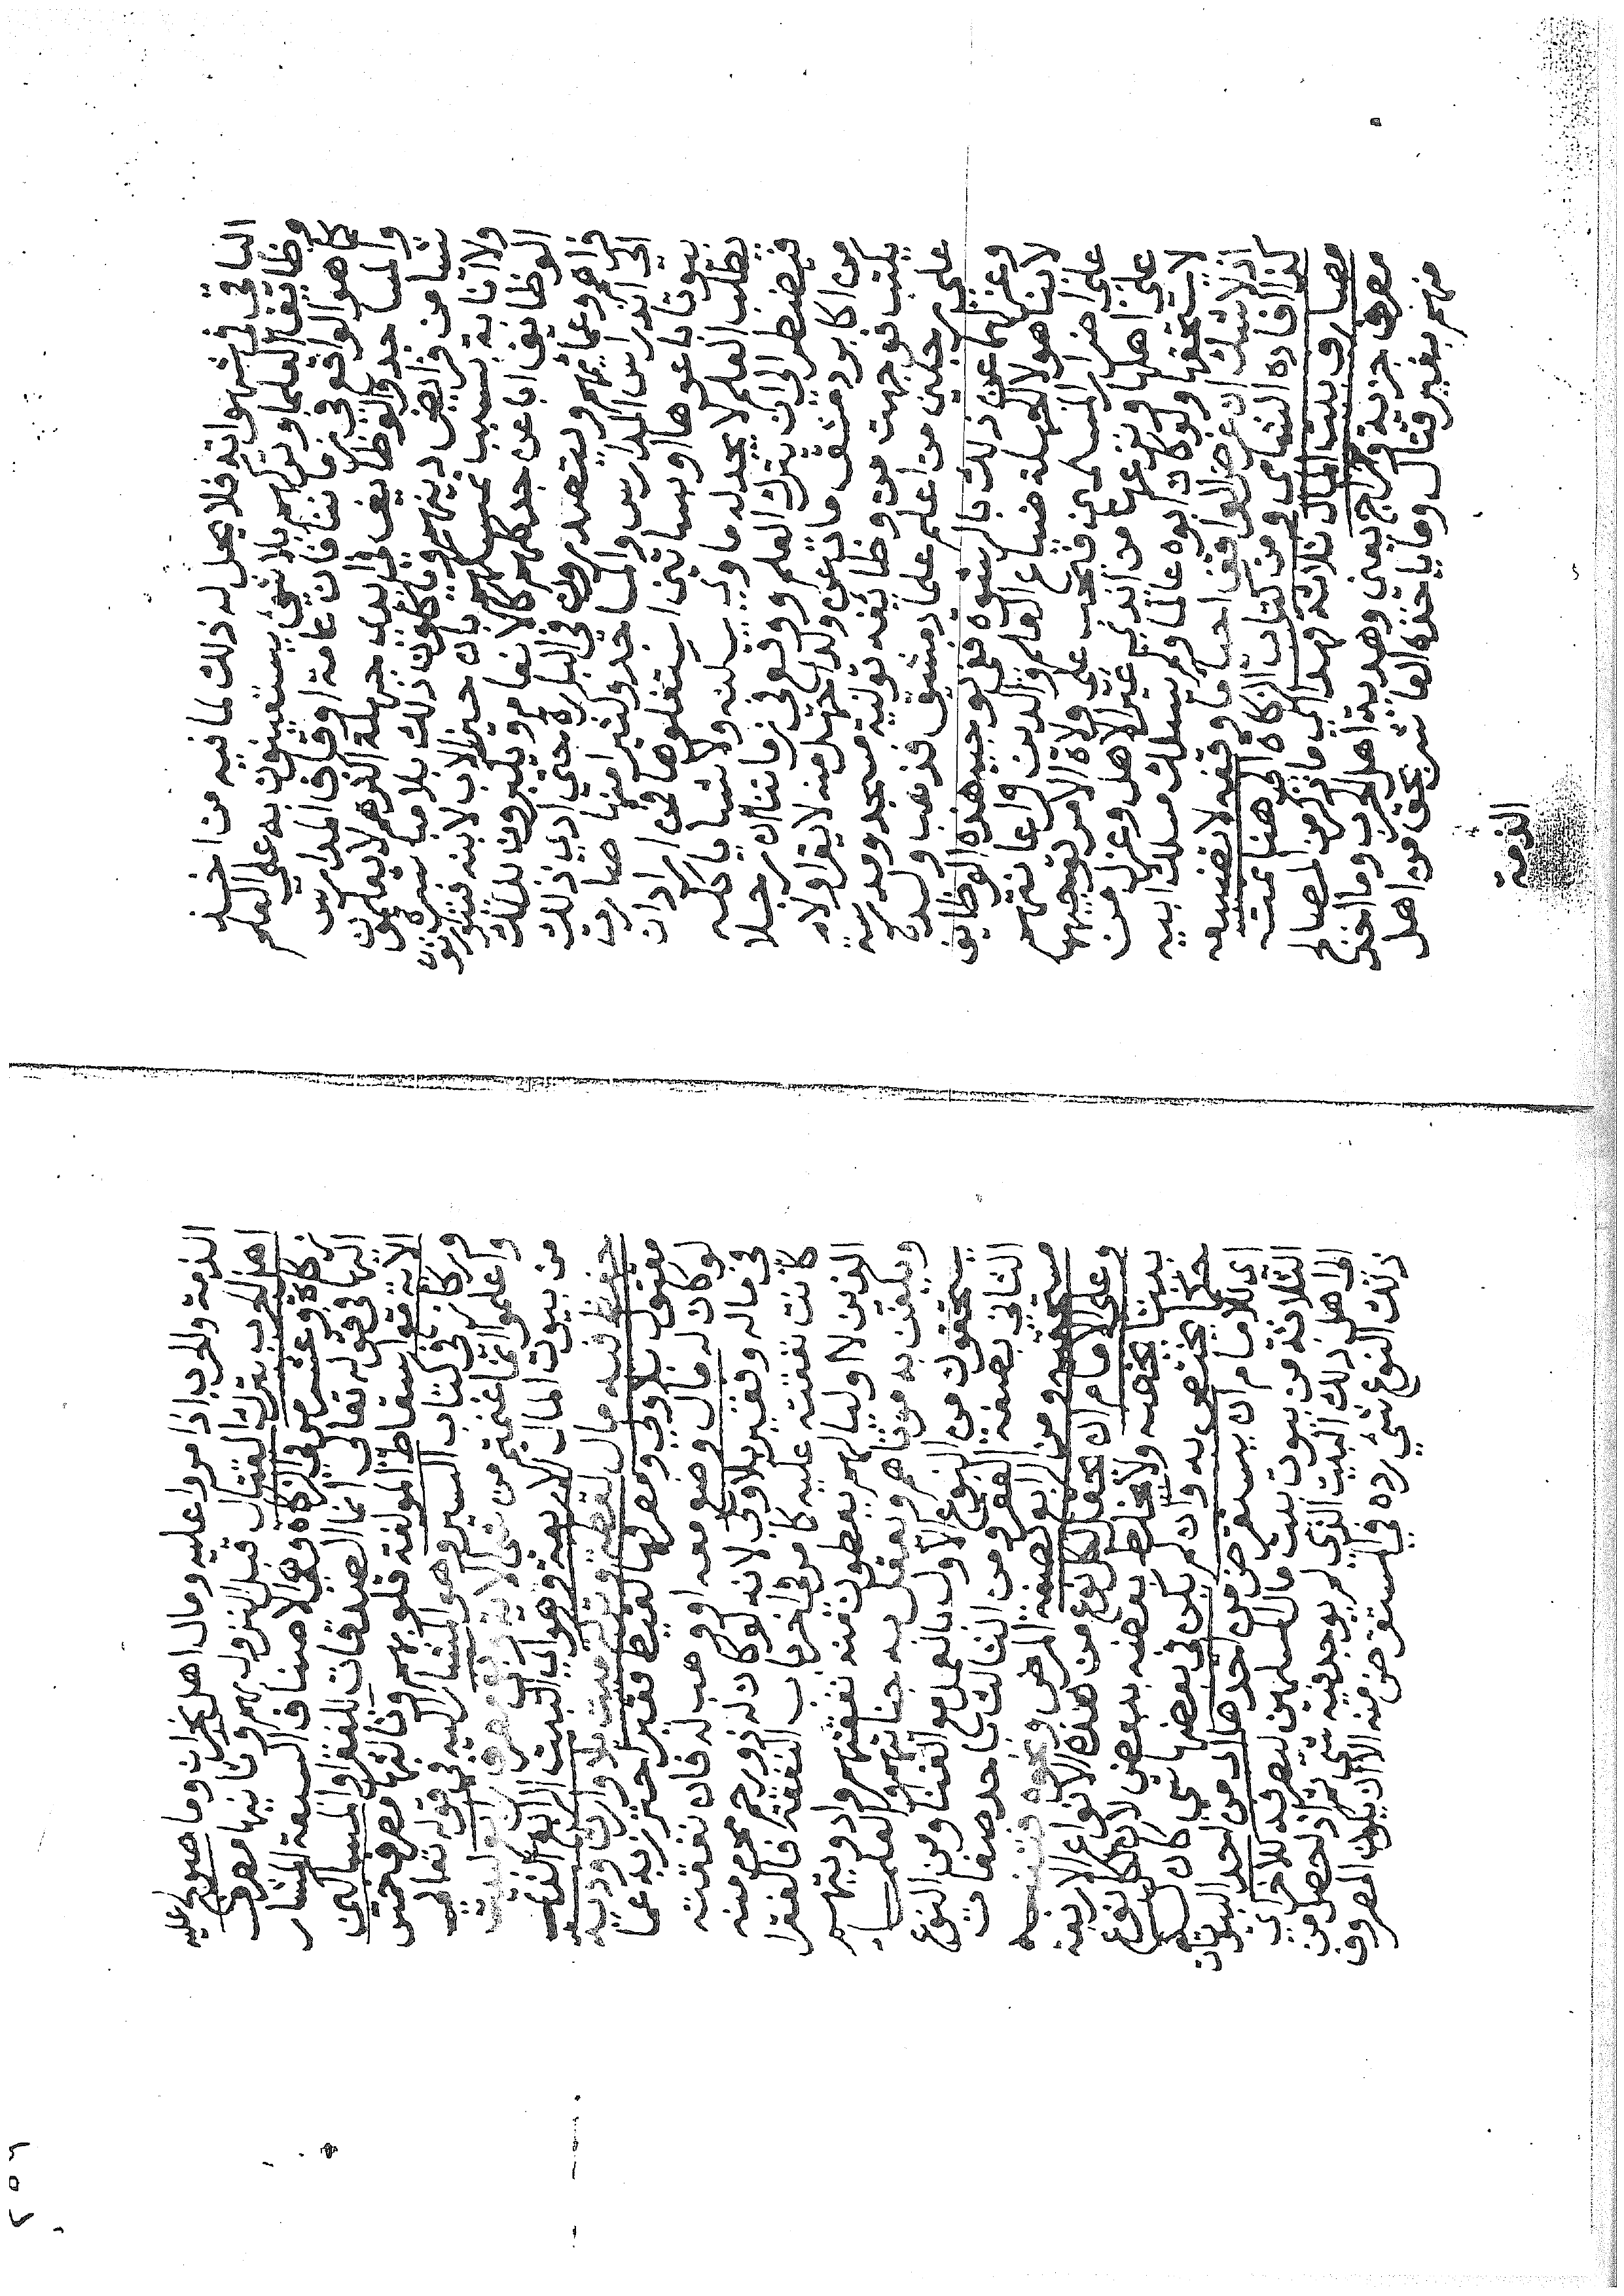 الباقي في شهواته فلا يحل له ذلك لما فيه من اخذ
وظايف العلما وتركهم بلا شيء يستعينون به على العلم
كما هو الواقع في زماننا فان عامة اوقاف المدارس
والمساجد والوظايف في ايدي جهلة اكثرهم لا يعلمون
شيا من فرايض دينهم وياكلون ذلك بلا مباشرة
ولا انابة بسبب تمسكهم بان خبز الاب لابنه فيتوارثون
الوظايف ابا عن جد كلهم كالانعام ويكبرون بذلك
فراهم وعمائمهم ويتصدرون في البلدة حتى ادى ذلك
الى اندراس المدارس والمساجد وكثير منها صارت
بيوتا باعوها او بساتين استغلوها فمن اراد ان
يطلب العلم لا يجد له ماوى يسكنه ولا شيا ياكله
فيضطر الى ان يترك العلم ووقع في زماننا ان رجلا
من اكابر دمشق مات عن ولد اجهل منه لا يقرا ولا
يكتب فوجهت من وظائفه تولية مسجد ومدرسة
على رجلين من اعلم علما دمشق فذهب ولده
وعزلهما عن ذلك بالرشوة ففي توجيه هذه الوظايف
لابنا هولا الجهلة ضياع العلم والدين واعانتهم
على اضرار المسلمين فيجب على ولاة الامر توجيهها
على اهلها ونزعها من ايدي غير الاهل وعزل من
لا يستحقها ولو كان ابوه عالما ولم يسلك مسلك ابيه
اذ لا شك ان غرض الواقف احيا ما وقفه لا تضييعه
كذا افاده الشامي من كتاب الزكاة الى هنا تمت
مصارف بيت المال ثلاثة فهذا الى ما ذكر من المصالح
مصرف جزية وخراج يعني وهدية اهل الحرب وما اخذ
منهم بغير قتال وما ياخذه العاشر بحق من اهل
الذمة
الذمة والحرب اذا مروا عليه ومال اهل نجران وما صولح عليه
اهل الحرب بترك القتال قبل النزول بهم وثانيها مصرف
زكاة وعشر مر في الزكاة وهي الاصناف السبعة المشار
اليها في قوله تعالى انما الصدقات للفقرا والمساكين
الاية بعد اسقاط المولفة قلوبهم وثالثها مصرف خمس
وركاز مر في كتاب السير وهو المشار اليه في قوله تعالى
واعلموا انما غنمتم من شي الاية
من بيوت المال الاربعة وهو البيت الرابع الذي
حفظ فيه مال لقطة وتركة ميت بلا وارث ودية
مقتول بلا ولي ومصرفها لقيط فقير احترز به عما
لو كان له مال وضع معه او وهب له فان نفقته
في ماله وفقير بلا ولي لانه لو كان له ذو رحم محرم منه
كانت نفقته عليه كما مر في اخر باب النفقة فالفقرا
الذين لا اوليا لهم يعطون منه نفقتهم وادويتهم
ويكفن به موتاهم ويعقل به جنايتهم والعلما
يستحقون من النوع الاول بالعمل مع الغنا ومن النوع
الثاني بصفة الفقر ومن الثالث باحد صفات
مستحقيه ومن الرابع بصفة المرض ونحوه
وعلى الامام ان يجعل لكل نوع من هذه الانواع الاربعة
بيتا يخصه ولا يخلط بعضه ببعض لان لكل نوع
حكما يختص به وان لم يكن في بعضها شي كان له
اي للامام ان يستقرض من احدها اي من احد البيوتات
الثلاثة من بيوت بيت مال المسلمين ليصرفه للاخر اي
الى اهل ذلك البيت الذي لم يوجد فيه شي ثم اذا حصل من
ذلك النوع شي رده في المستقرض منه الا ان يكون المصروف
٢٥٦